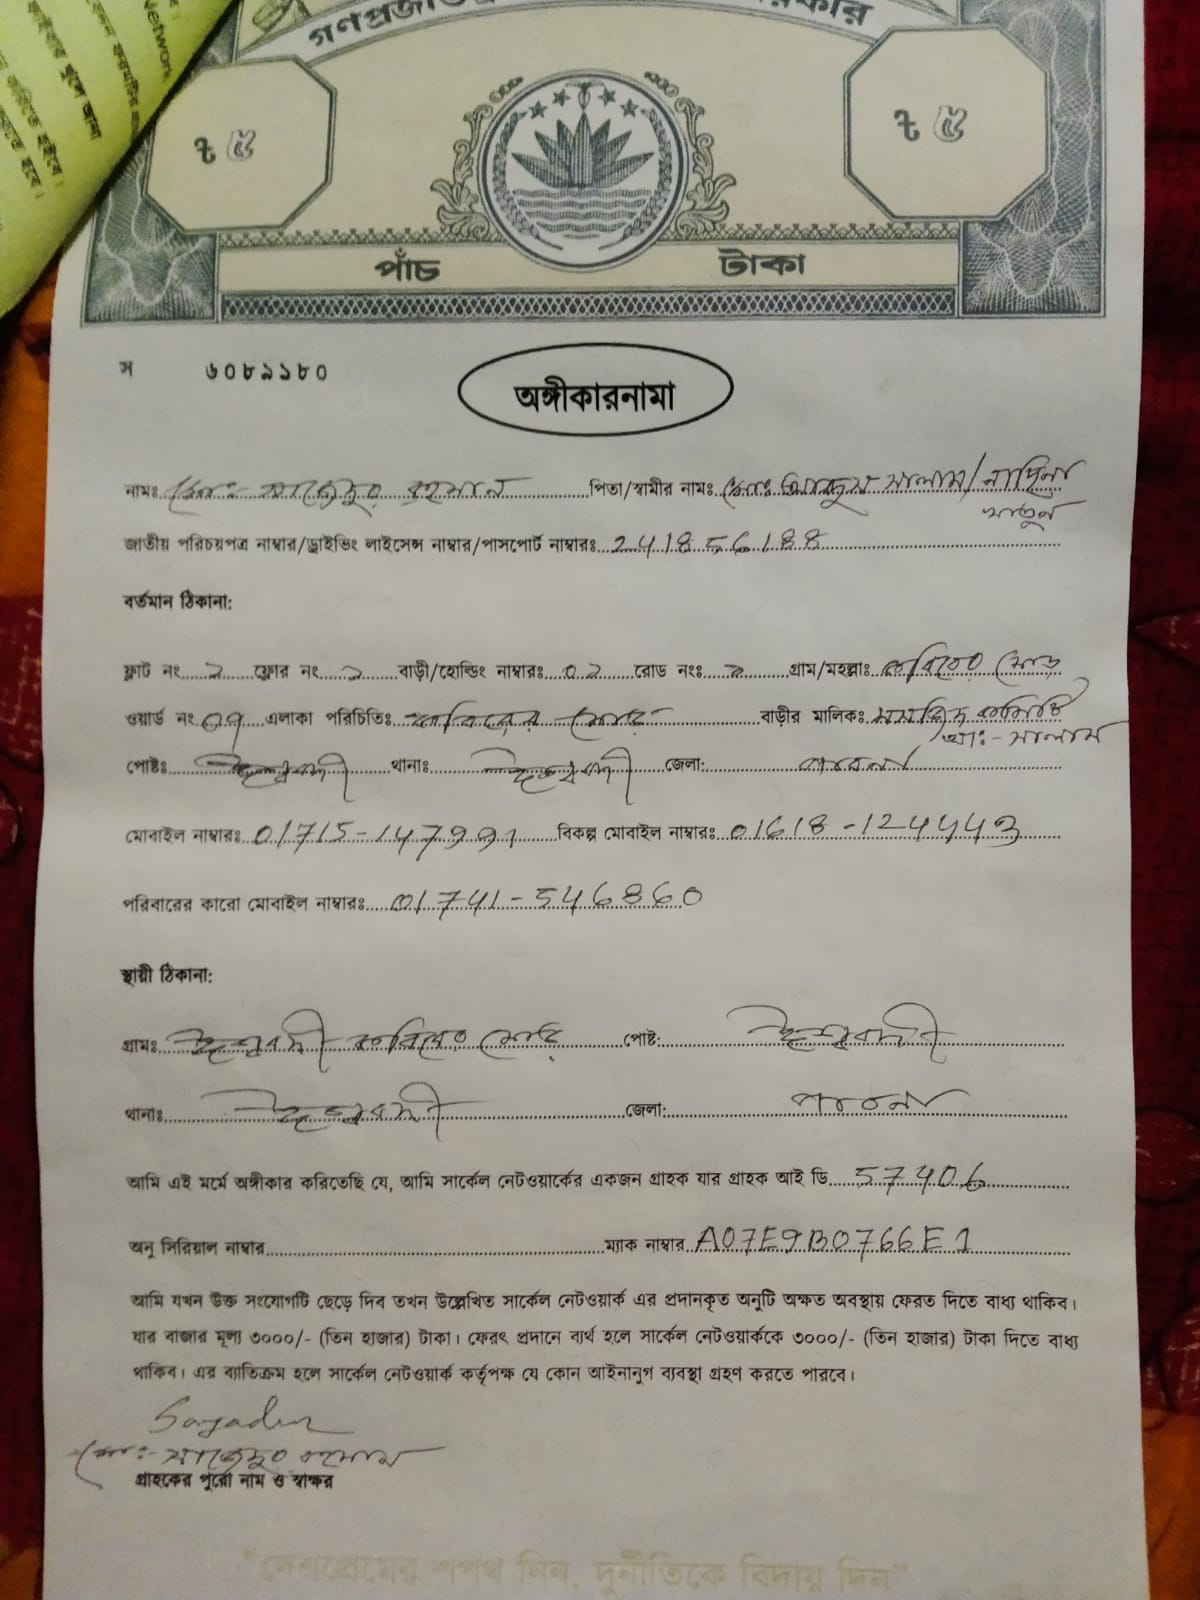 Network
গণপ্রজাত
৳ ৫
৳ ৫
পাঁচ টাকা
স ৬০৮৯১৮০
অঙ্গীকারনামা
নামঃ মোঃ- সাজেদুর রহমান পিতা/স্বামীর নামঃ মোঃ সালাম/
খাতুন
জাতীয় পরিচয়পত্র নাম্বার/ড্রাইভিং লাইসেন্স নাম্বার/পাসপোর্ট নাম্বারঃ 241856188
বর্তমান ঠিকানা:
ফ্লাট নং ফ্লোর নং বাড়ী/হোল্ডিং নাম্বারঃ রোড নংঃ গ্রাম/মহল্লাঃ
ওয়ার্ড নং এলাকা পরিচিতিঃ বাড়ীর মালিকঃ
আঃ- সালাম
পোষ্টঃ ঈশ্বরদী থানাঃ ঈশ্বরদী জেলা: পাবনা
মোবাইল নাম্বারঃ 01715-147991 বিকল্প মোবাইল নাম্বারঃ 01618-124443
পরিবারের কারো মোবাইল নাম্বারঃ 01741-546860
স্থায়ী ঠিকানা:
গ্রামঃ ঈশ্বরদী পোষ্ট: ঈশ্বরদী
থানাঃ ঈশ্বরদী জেলা: পাবনা
আমি এই মর্মে অঙ্গীকার করিতেছি যে, আমি সার্কেল নেটওয়ার্কের একজন গ্রাহক যার গ্রাহক আই ডি 57406
অনু সিরিয়াল নাম্বার ম্যাক নাম্বার A07E9B0766E1
আমি যখন উক্ত সংযোগটি ছেড়ে দিব তখন উল্লেখিত সার্কেল নেটওয়ার্ক এর প্রদানকৃত অনুটি অক্ষত অবস্থায় ফেরত দিতে বাধ্য থাকিব।
যার বাজার মূল্য ৩০০০/- (তিন হাজার) টাকা। ফেরৎ প্রদানে ব্যর্থ হলে সার্কেল নেটওয়ার্ককে ৩০০০/- (তিন হাজার) টাকা দিতে বাধ্য
থাকিব। এর ব্যতিক্রম হলে সার্কেল নেটওয়ার্ক কর্তৃপক্ষ যে কোন আইনানুগ ব্যবস্থা গ্রহণ করতে পারবে।
Sayadur
মোঃ- সাজেদুর রহমান
গ্রাহকের পুরো নাম ও স্বাক্ষর
"দেশপ্রেমের শপথ নিন, দুর্নীতিকে বিদায় দিন"